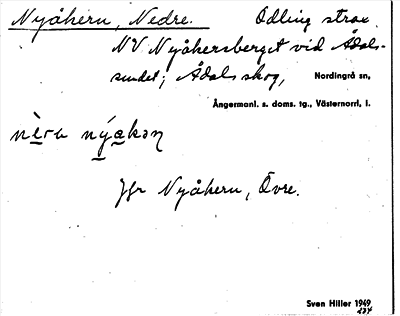 Nyåkern, Nedre. Odling strax
NV Nyåkersberget vid Ådals-
sundet; Ådals skog, Nordingrå sn,
Ångermanl. s. doms. tg., Västernorrl. l.
nèra nýakən
Jfr Nyåkern, Övre.
Sven Hiller 1949